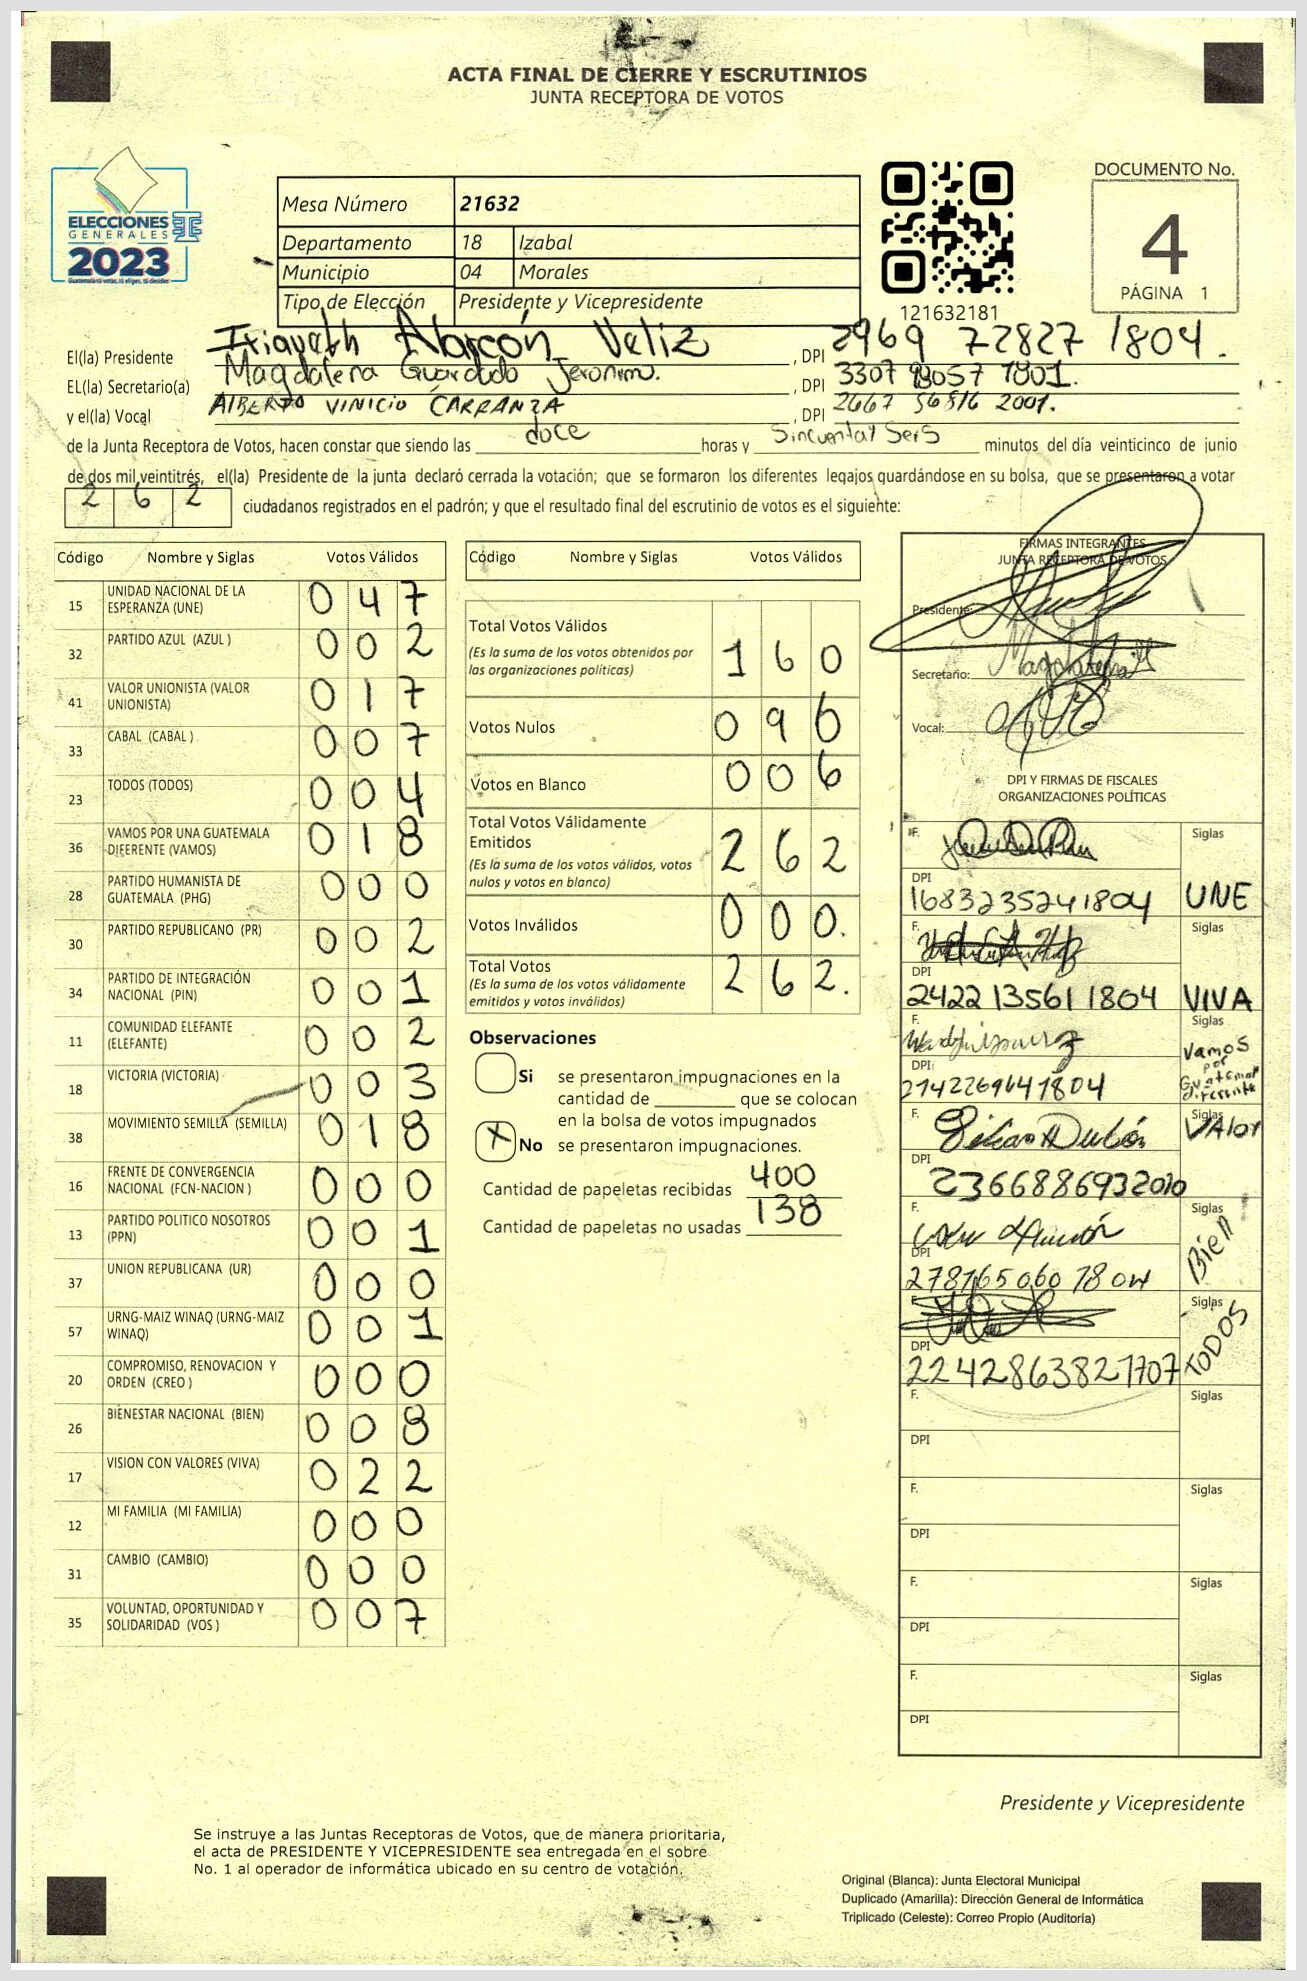 ACTA FINAL DE CIERRE Y ESCRUTINIOS
JUNTA RECEPTORA DE VOTOS
ELECCIONES
GENERALES
2023
Mesa Número 21632
Departamento 18 Izabal
Municipio 04 Morales
Tipo de Elección Presidente y Vicepresidente
121632181
DOCUMENTO No.
4
PÁGINA 1
El(la) Presidente Alarcón Veliz , DPI 2969 72827 1804.
EL(la) Secretario(a) Magdalena Guardado Jeronimo. , DPI 3307 1801.
y el(la) Vocal ALBERTO VINICIO CARRANZA , DPI 2667 56816 2001.
de la Junta Receptora de Votos, hacen constar que siendo las doce horas y Sincuentay Seis minutos del día veinticinco de junio
de dos mil veintitrés, el(la) Presidente de la junta declaró cerrada la votación; que se formaron los diferentes legajos guardándose en su bolsa, que se presentaron a votar
2 6 2 ciudadanos registrados en el padrón; y que el resultado final del escrutinio de votos es el siguiente:
Código Nombre y Siglas Votos Válidos
15 UNIDAD NACIONAL DE LA ESPERANZA (UNE) 0 4 7
32 PARTIDO AZUL (AZUL ) 0 0 2
41 VALOR UNIONISTA (VALOR UNIONISTA) 0 1 7
33 CABAL (CABAL ) 0 0 7
23 TODOS (TODOS) 0 0 4
36 VAMOS POR UNA GUATEMALA DIFERENTE (VAMOS) 0 1 8
28 PARTIDO HUMANISTA DE GUATEMALA (PHG) 0 0 0
30 PARTIDO REPUBLICANO (PR) 0 0 2
34 PARTIDO DE INTEGRACIÓN NACIONAL (PIN) 0 0 1
11 COMUNIDAD ELEFANTE (ELEFANTE) 0 0 2
18 VICTORIA (VICTORIA) 0 0 3
38 MOVIMIENTO SEMILLA (SEMILLA) 0 1 8
16 FRENTE DE CONVERGENCIA NACIONAL (FCN-NACION ) 0 0 0
13 PARTIDO POLITICO NOSOTROS (PPN) 0 0 1
37 UNION REPUBLICANA (UR) 0 0 0
57 URNG-MAIZ WINAQ (URNG-MAIZ WINAQ) 0 0 1
20 COMPROMISO, RENOVACION Y ORDEN (CREO ) 0 0 0
26 BIENESTAR NACIONAL (BIEN) 0 0 8
17 VISION CON VALORES (VIVA) 0 2 2
12 MI FAMILIA (MI FAMILIA) 0 0 0
31 CAMBIO (CAMBIO) 0 0 0
35 VOLUNTAD, OPORTUNIDAD Y SOLIDARIDAD (VOS ) 0 0 7
Código Nombre y Siglas Votos Válidos
Total Votos Válidos 1 6 0
(Es la suma de los votos obtenidos por
las organizaciones políticas)
Votos Nulos 0 9 6
Votos en Blanco 0 0 6
Total Votos Válidamente
Emitidos 2 6 2
(Es la suma de los votos válidos, votos
nulos y votos en blanco)
Votos Inválidos 0 0 0.
Total Votos 2 6 2.
(Es la suma de los votos válidamente
emitidos y votos inválidos)
Observaciones
Si se presentaron impugnaciones en la
cantidad de ________ que se colocan
en la bolsa de votos impugnados
X No se presentaron impugnaciones.
Cantidad de papeletas recibidas 400
Cantidad de papeletas no usadas 138
FIRMAS INTEGRANTES
JUNTA RECEPTORA DE VOTOS
Presidente:
Secretario: Magdalena
Vocal:
DPI Y FIRMAS DE FISCALES
ORGANIZACIONES POLÍTICAS
F. Siglas
DPI
1683235241804 UNE
F. Siglas
DPI
2422 13561 1804 VIVA
F. Siglas
DPI Vamos por Guatemala
2742269641804
F. Siglas
DPI Valor
2366886932010
F. Siglas
DPI Bien
F. Siglas
DPI TODOS
2242863821707
F. Siglas
DPI
F. Siglas
DPI
F. Siglas
DPI
F. Siglas
DPI
Presidente y Vicepresidente
Se instruye a las Juntas Receptoras de Votos, que de manera prioritaria,
el acta de PRESIDENTE Y VICEPRESIDENTE sea entregada en el sobre
No. 1 al operador de informática ubicado en su centro de votación.
Original (Blanca): Junta Electoral Municipal
Duplicado (Amarilla): Dirección General de Informática
Triplicado (Celeste): Correo Propio (Auditoría)